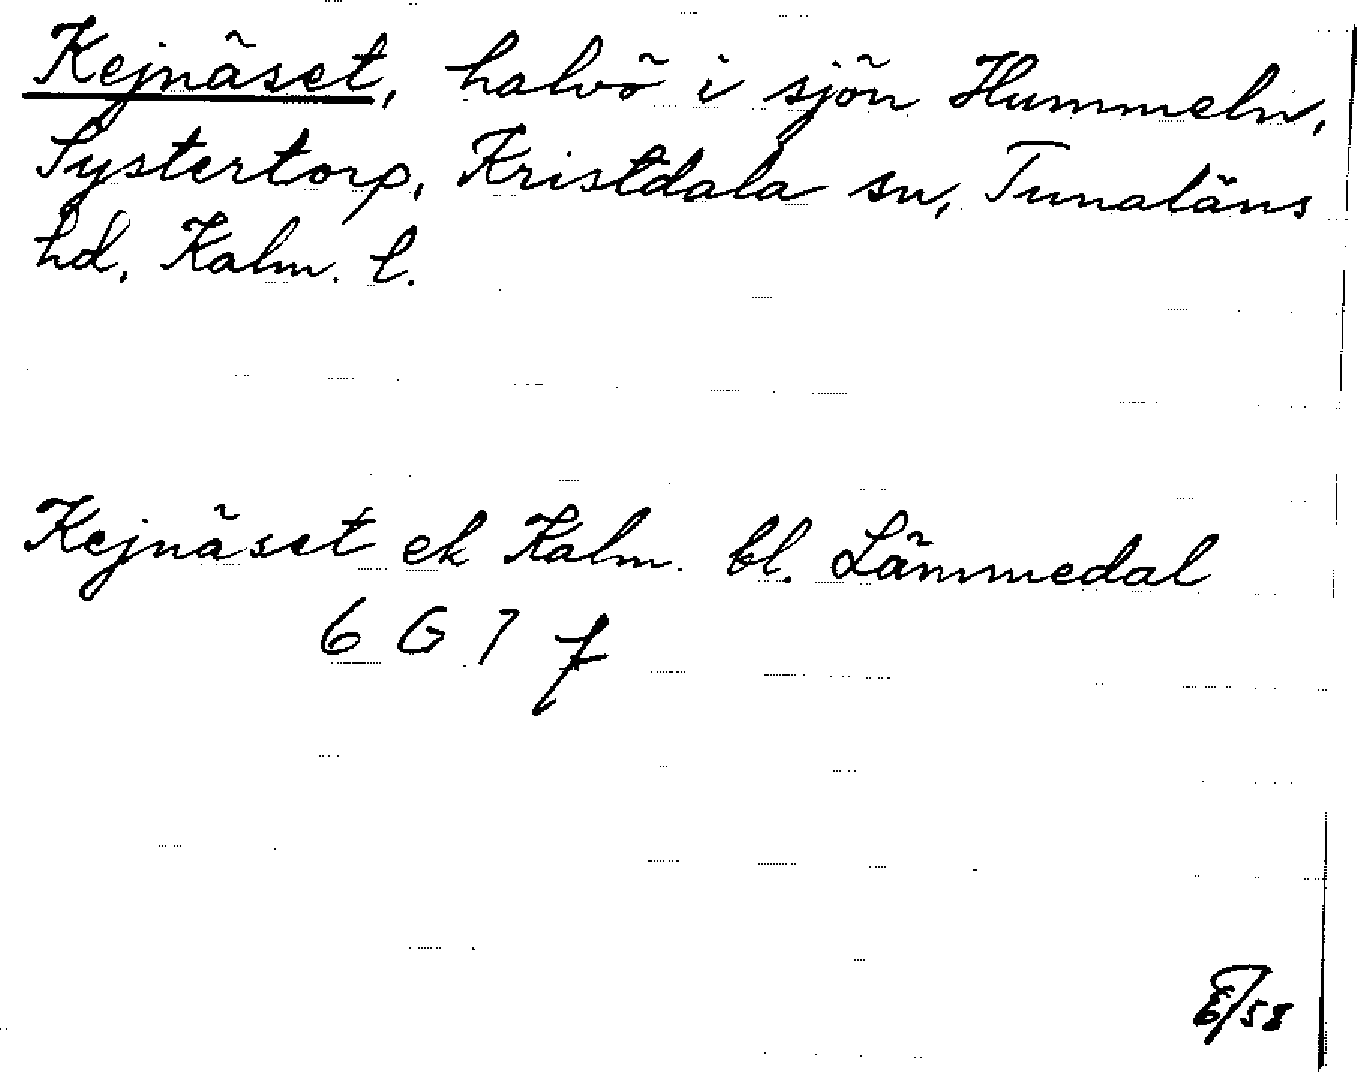 Kejnäset, halvö i sjön Hummeln,
Systertorp, Kristdala sn, Tunaläns
hd, Kalm. l.
Kejnäset ek Kalm. bl. Lämmedal
6 G 7 f